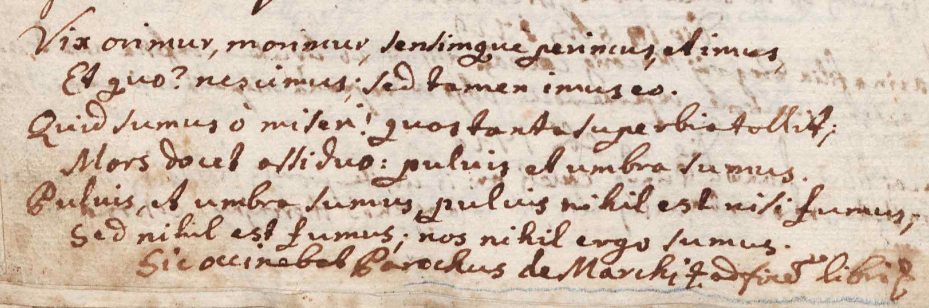 Vix orimur, morimur, sensimque perimus, et imus,
Et quo? nescimus; sed tamen imus eo.
Quid sumus ò miseri! quos tanta superbia tollit;
Mors docet assiduo: puluis et umbra sumus.
Puluis, et umbra sumus, puluis nihil est nisi fumus;
Sed nihil est fumus; nos nihil ergo sumus.
Sic occinebat Parochus de Marchi libri